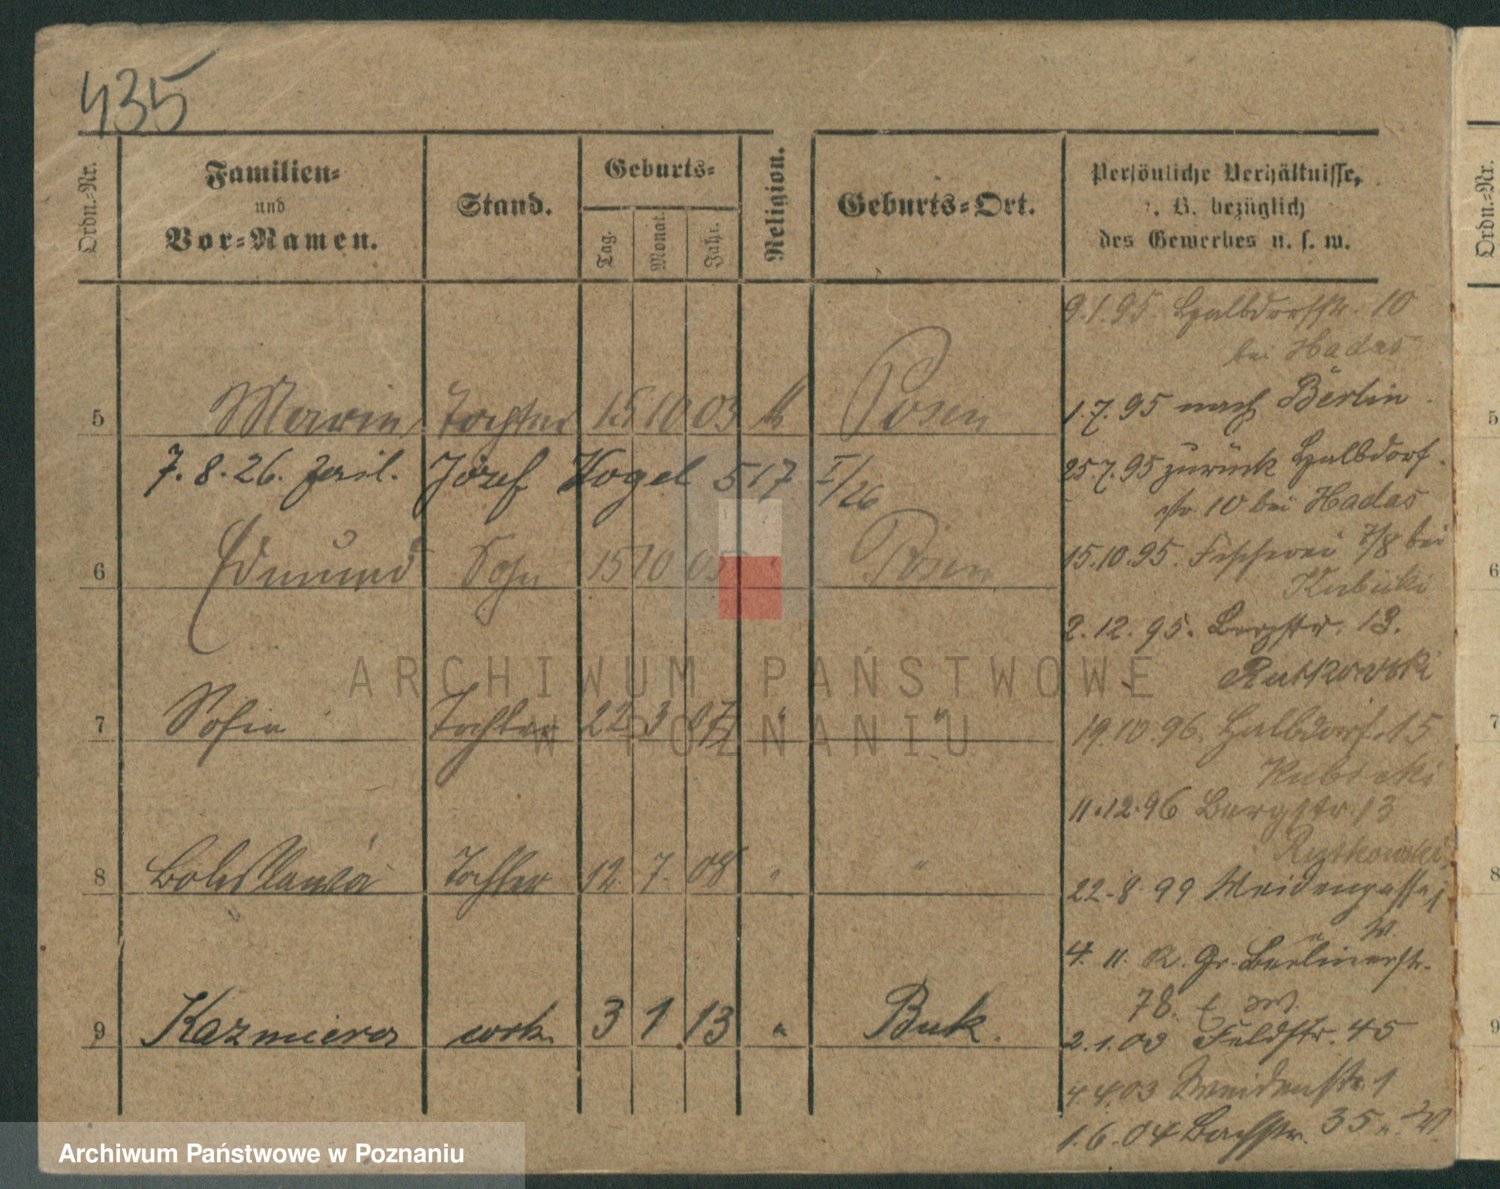 435
Ordn.-Nr.
Familien-
und
Vor-Namen.
Stand.
Geburts-
Tag.
Monat.
Jahr.
Religion.
Geburts-Ort.
Persönliche Verhältnisse,
z. B. bezüglich
des Gewerbes u. s. w.
5 Maria Tochter 15 10 03 Posen
7. 8. 26. Józef Vogel 517 I/26
6 Edmund Sohn 15 10 05 " Posen
7 Sofia Tochter 22 3 07 " "
8 Boleslawa Tochter 12. 7. 08 " "
9 Kazmiera 3 1 13 " Buk.
9.1.95. Halbdorfstr. 10
bei Hadas
1.7.95 nach Berlin.
25.7.95 zurück Halbdorf-
str 10 bei Hadas
15.10.95. Fischerei 7/8 bei
Kubicki
2.12.95. Bergstr. 13.
Rutkowski
19.10.96. Halbdorf. 15
Kubicki
11.12.96 Bergstr. 13
Rutkowski
22.8.99 Weidengasse
4. 11. Gr. Berlinerstr.
78.
2.1.03 Feldstr. 45
4 4 03 Weidenstr. 1
1.6.04 Bachstr. 35
Ordn.-Nr.
5
6
7
8
9
ARCHIWUM PAŃSTWOWE
W POZNANIU
Archiwum Państwowe w Poznaniu